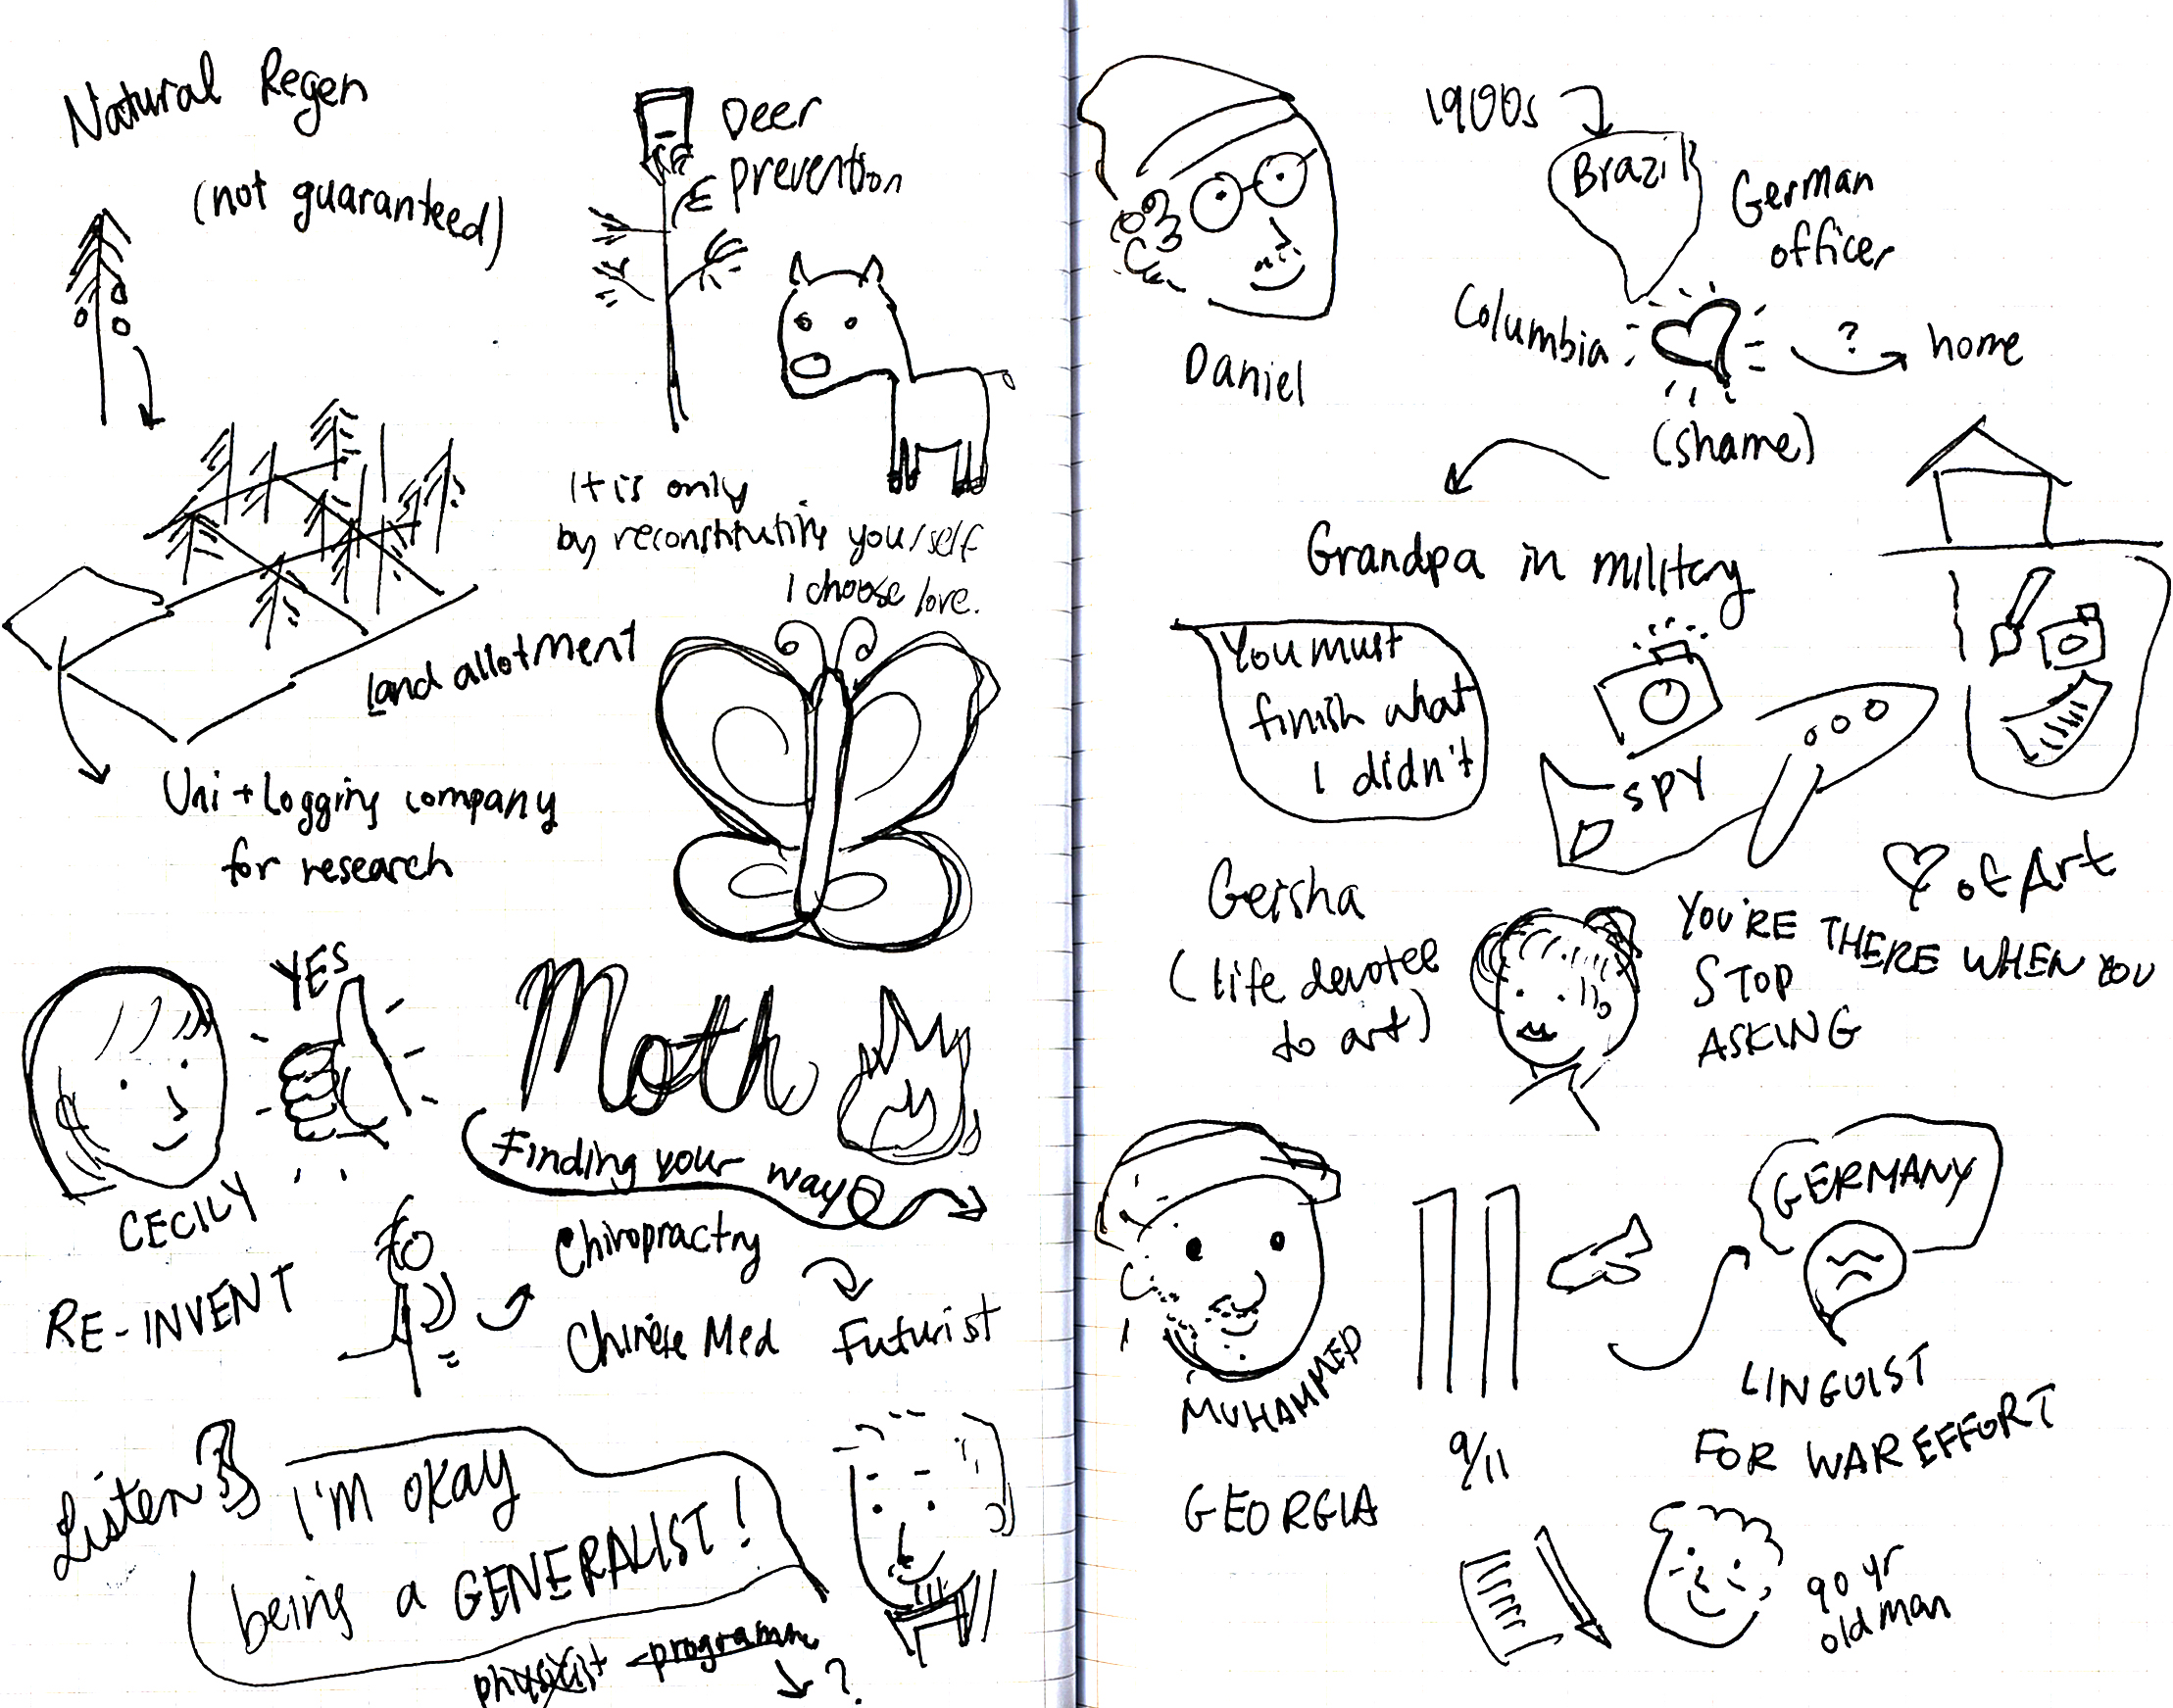 Natural Regen
(not guaranteed)
Deer
prevention
It is only
by reconstituting yourself
I choose love.
Land allotment
Uni + Logging company
for research
YES
CECILY
Moth
Finding your way
RE-INVENT
Chiropractry
Chinese Med
Futurist
Listen
I'M OKAY
being a GENERALIST!
physicist programm
?
Daniel
1900s
Brazil
German
officer
Columbia
?
home
(shame)
Grandpa in military
You must
finish what
I didn't
SPY
of Art
Geisha
(life devotee
to art)
YOU'RE THERE WHEN YOU
STOP
ASKING
MUHAMMED
GEORGIA
9/11
GERMANY
LINGUIST
FOR WAR EFFORT
90 yr
old man